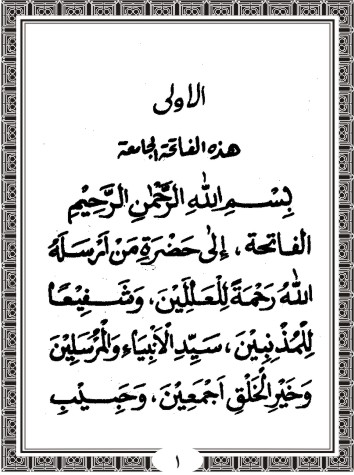 الاولى
هذه الفاتحة الجامعة
بِسْمِ اللّٰهِ الرَّحْمٰنِ الرَّحِيْمِ
الفاتحة ، إِلَى حَضْرَةِ مَنْ أَرْسَلَهُ
اللّٰهُ رَحْمَةً لِلْعَالَمِيْنَ ، وَشَفِيْعًا
لِلْمُذْنِبِيْنَ ، سَيِّدِ الْأَنْبِيَاءِ وَالْمُرْسَلِيْنَ
وَخَيْرِ الْخَلْقِ اَجْمَعِيْنَ ، وَحَبِيْبِ
١